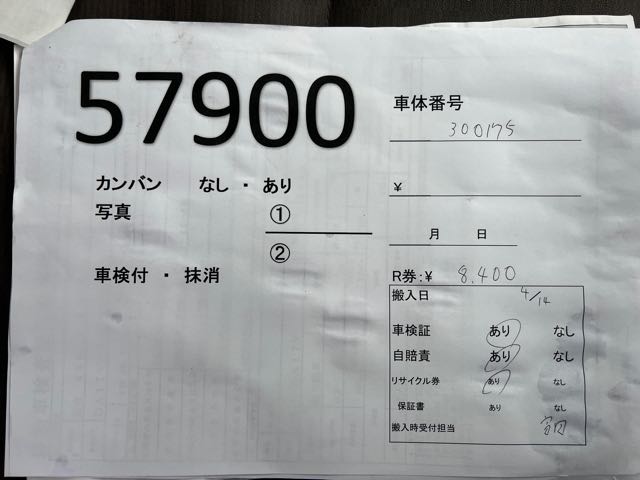 57900
車体番号
300175
カンバン なし ・ あり
写真 ①
②
車検付 ・ 抹消
¥
月 日
R券:¥ 8,400
搬入日 4/14
車検証 あり なし
自賠責 あり なし
リサイクル券 あり なし
保証書 あり なし
搬入時受付担当